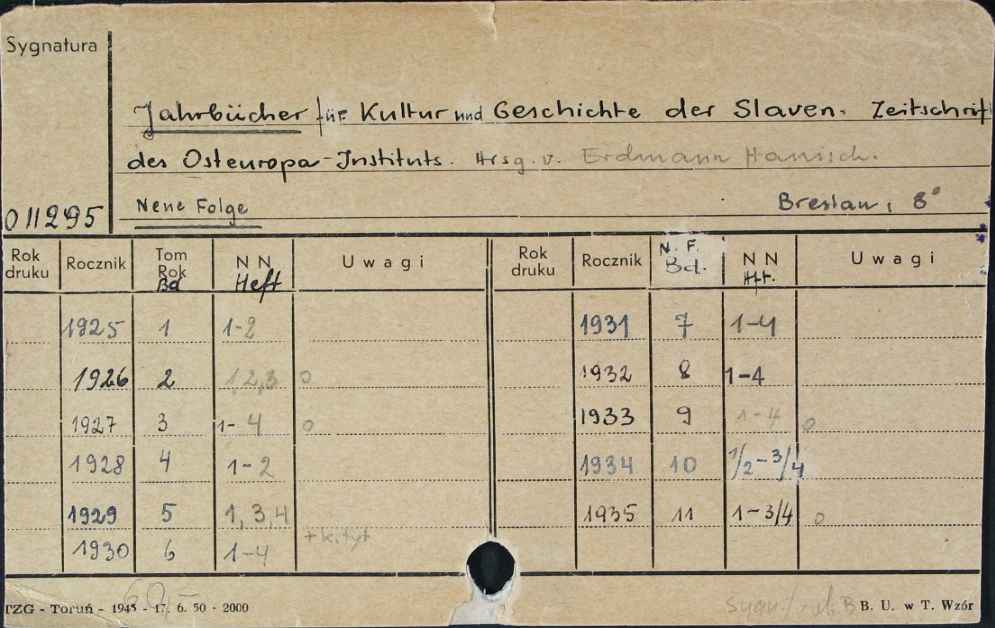 Sygnatura
Jahrbücher für Kultur und Geschichte der Slaven. Zeitschrift
des Osteuropa-Instituts. Hrsg. v. Erdmann Hanisch.
011295 Neue Folge Breslau, 8°
Rok druku Rocznik Tom Rok Bd NN Heft Uwagi Rok druku Rocznik N. F. Bd. NN Hft. Uwagi
1925 1 1-2 1931 7 1-4
1926 2 1,2,3 o 1932 8 1-4
1927 3 1-4 o 1933 9 1-4 o
1928 4 1-2 1934 10 1/2-3/4
1929 5 1, 3, 4 1935 11 1-3/4 o
+k. tyt
1930 6 1-4
TZG - Toruń - 1945 - 17. 6. 50 - 2000 B. U. w T. Wzór